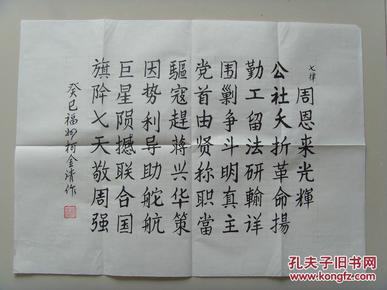 七律
周恩来光輝
公社夭折革命揚
勤工留法研輸详
围剿争斗明真主
党首由贤称职當
驅寇趕蒋兴华策
因势利导助舵航
巨星陨撼联合国
旗降弋天敬周强
癸巳福州柯金清作
孔夫子旧书网